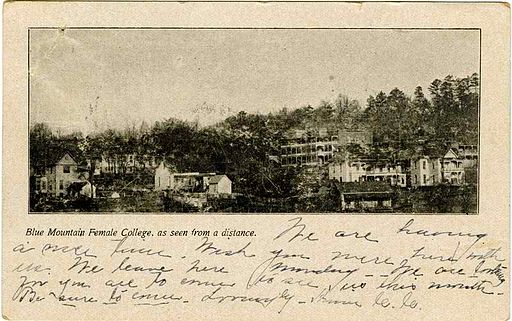 Blue Mountain Female College, as seen from a distance.
We are having
a nice time. Wish you were here with
us. We leave here Monday – We are looking
for you all to come to see us this month –
Be sure to come. Lovingly –